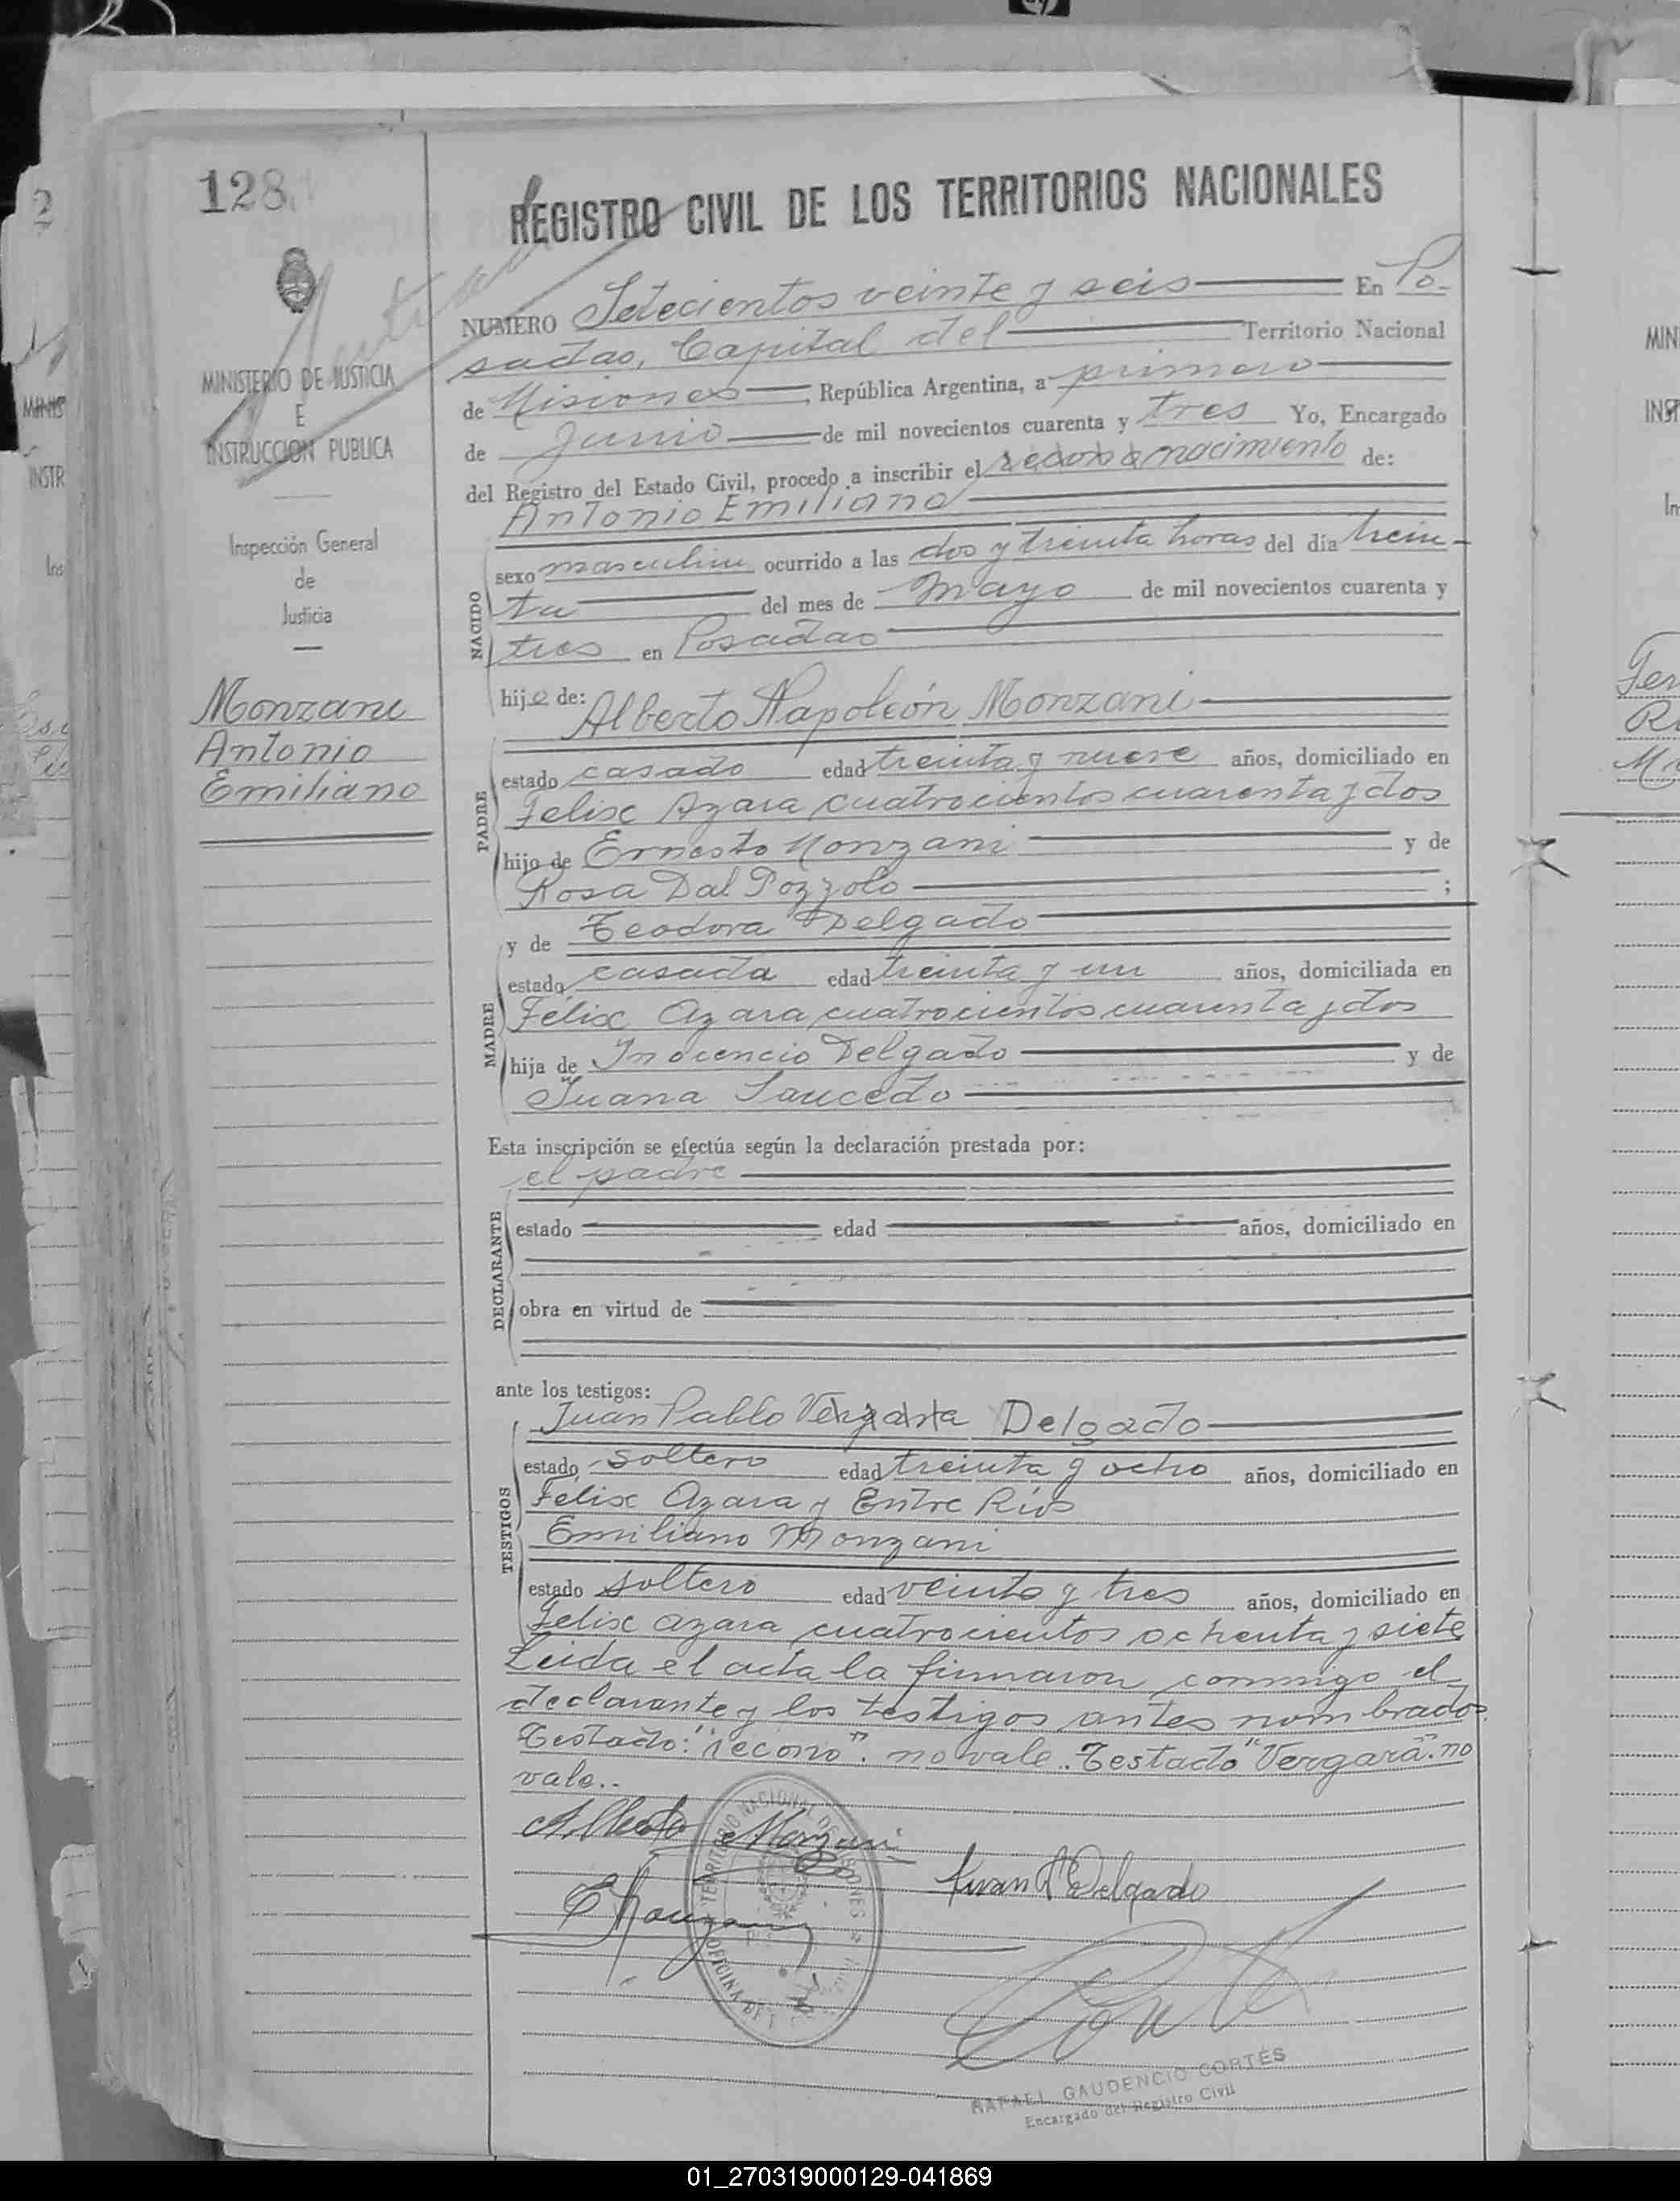 128
REGISTRO CIVIL DE LOS TERRITORIOS NACIONALES
MINISTERIO DE JUSTICIA
E
INSTRUCCION PUBLICA
Inspección General
de
Justicia
Monzani
Antonio
Emiliano
NUMERO Setecientos veinte y seis En Po-
sadas, Capital del Territorio Nacional
de Misiones, República Argentina, a primero
de Junio de mil novecientos cuarenta y tres Yo, Encargado
del Registro del Estado Civil, procedo a inscribir el recono nacimiento de:
Antonio Emiliano
NACIDO
sexo masculino ocurrido a las dos y treinta horas del día trein-
ta del mes de Mayo de mil novecientos cuarenta y
tres en Posadas
hijo de: Alberto Napoleón Monzani
PADRE
estado casado edad treinta y nueve años, domiciliado en
Felix Azara cuatrocientos cuarenta y dos
hijo de Ernesto Monzani y de
Rosa Dal Pozzolo ;
y de Teodora Delgado
MADRE
estado casada edad treinta y un años, domiciliada en
Félix Azara cuatrocientos cuarenta y dos
hija de Inocencio Delgado y de
Juana Saucedo
Esta inscripción se efectúa según la declaración prestada por:
el padre
DECLARANTE
estado edad años, domiciliado en
obra en virtud de
ante los testigos:
Juan Pablo Vergara Delgado
TESTIGOS
estado soltero edad treinta y ocho años, domiciliado en
Félix Azara y Entre Ríos
Emiliano Monzani
estado soltero edad veinte y tres años, domiciliado en
Felix Azara cuatrocientos ochenta y siete
Leida el acta la firmaron conmigo el
declarante y los testigos antes nombrados.
Testado: "recono". no vale. Testado "Vergara". no
vale..
Alberto Monzani
Juan P Delgado
E Monzani
TERRITORIO NACIONAL DE MISIONES
OFICINA DEL
RAFAEL GAUDENCIO CORTÉS
Encargado del Registro Civil
01_270319000129-041869